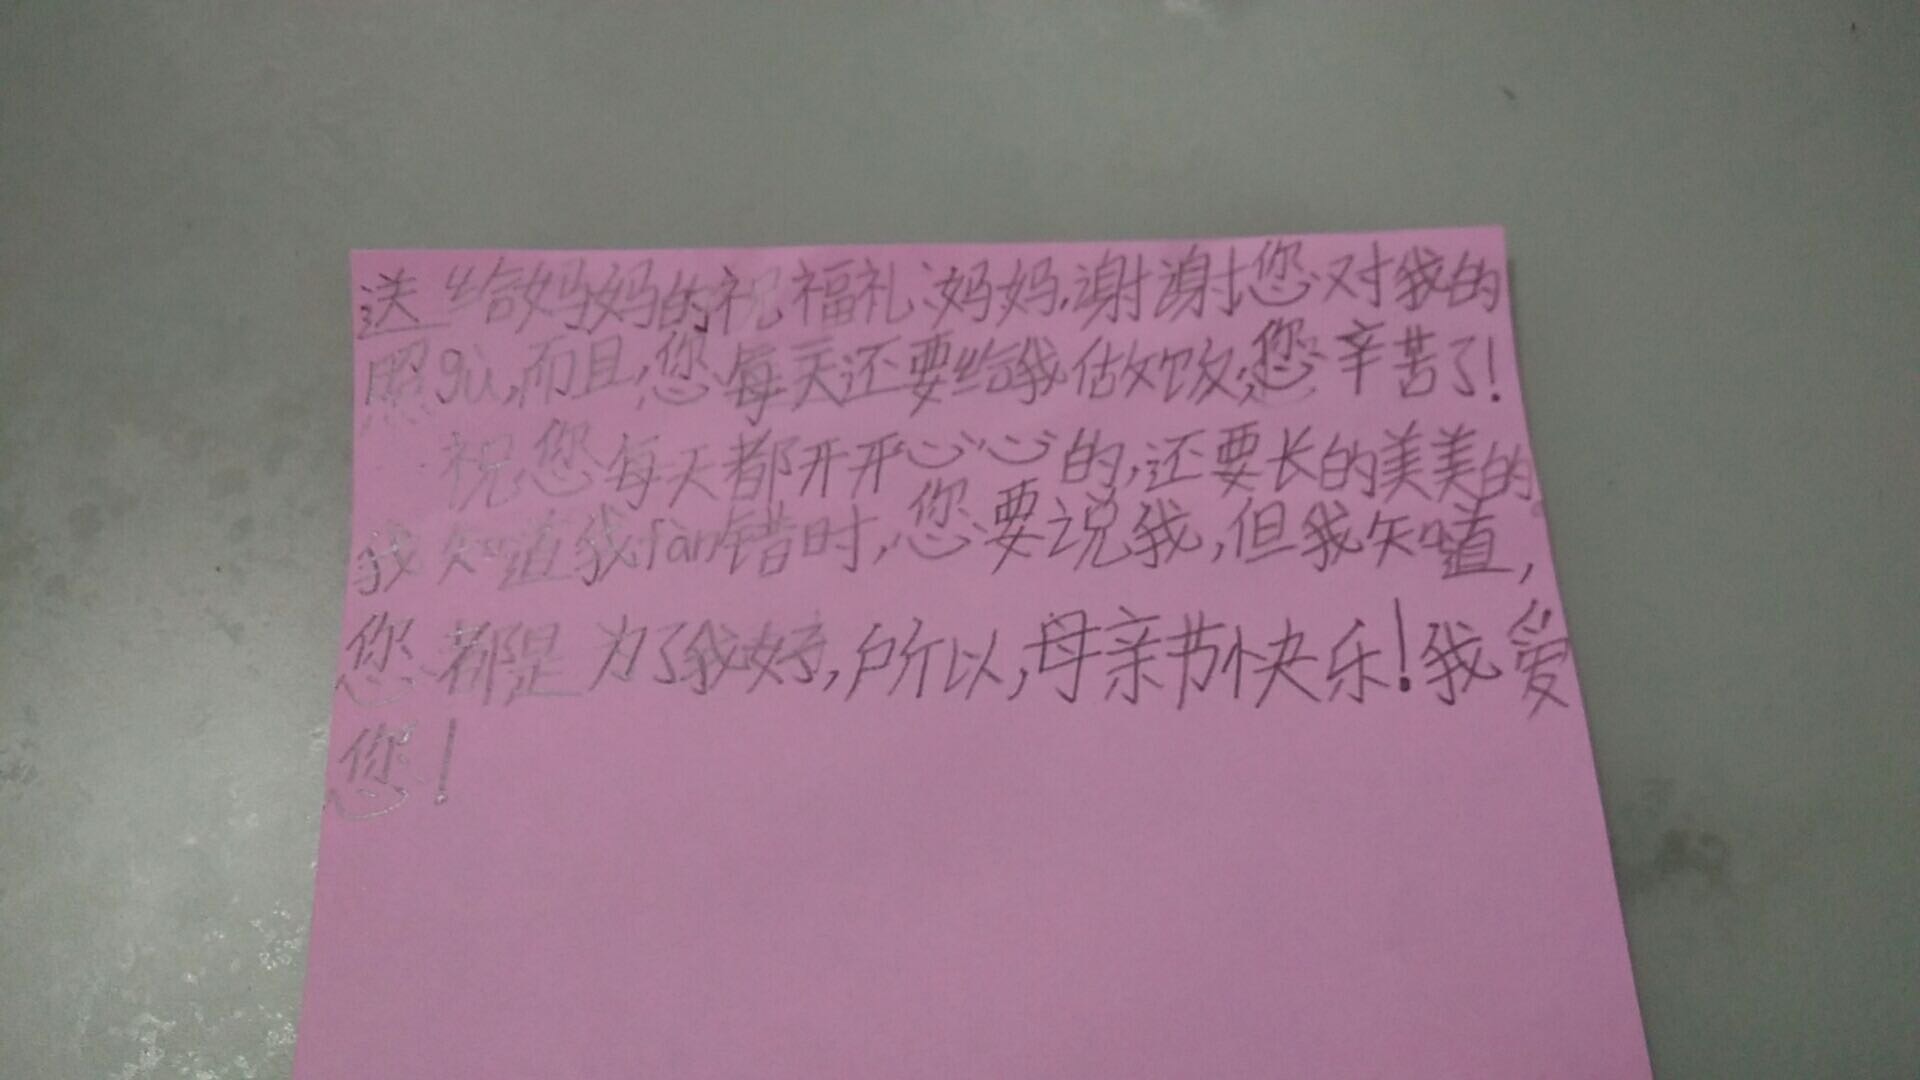 送给妈妈的祝福礼:妈妈,谢谢您对我的
照gù,而且,您每天还要给我做饭,您辛苦了!
祝您每天都开开心心的,还要长的美美的。
我知道我fàn错时,您要说我,但我知道,
您都是为了我好,所以,母亲节快乐!我爱
您!